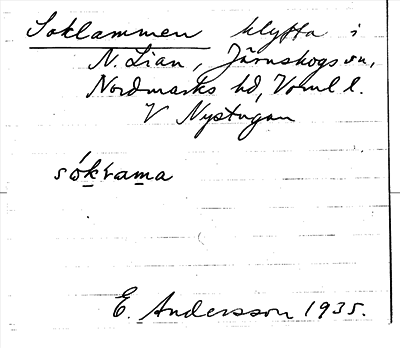 Soklammen klyfta i
N. Lian, Järnskogs sn,
Nordmarks hd, Vrml l.
V Nystugan
sókrama
E. Andersson 1935.